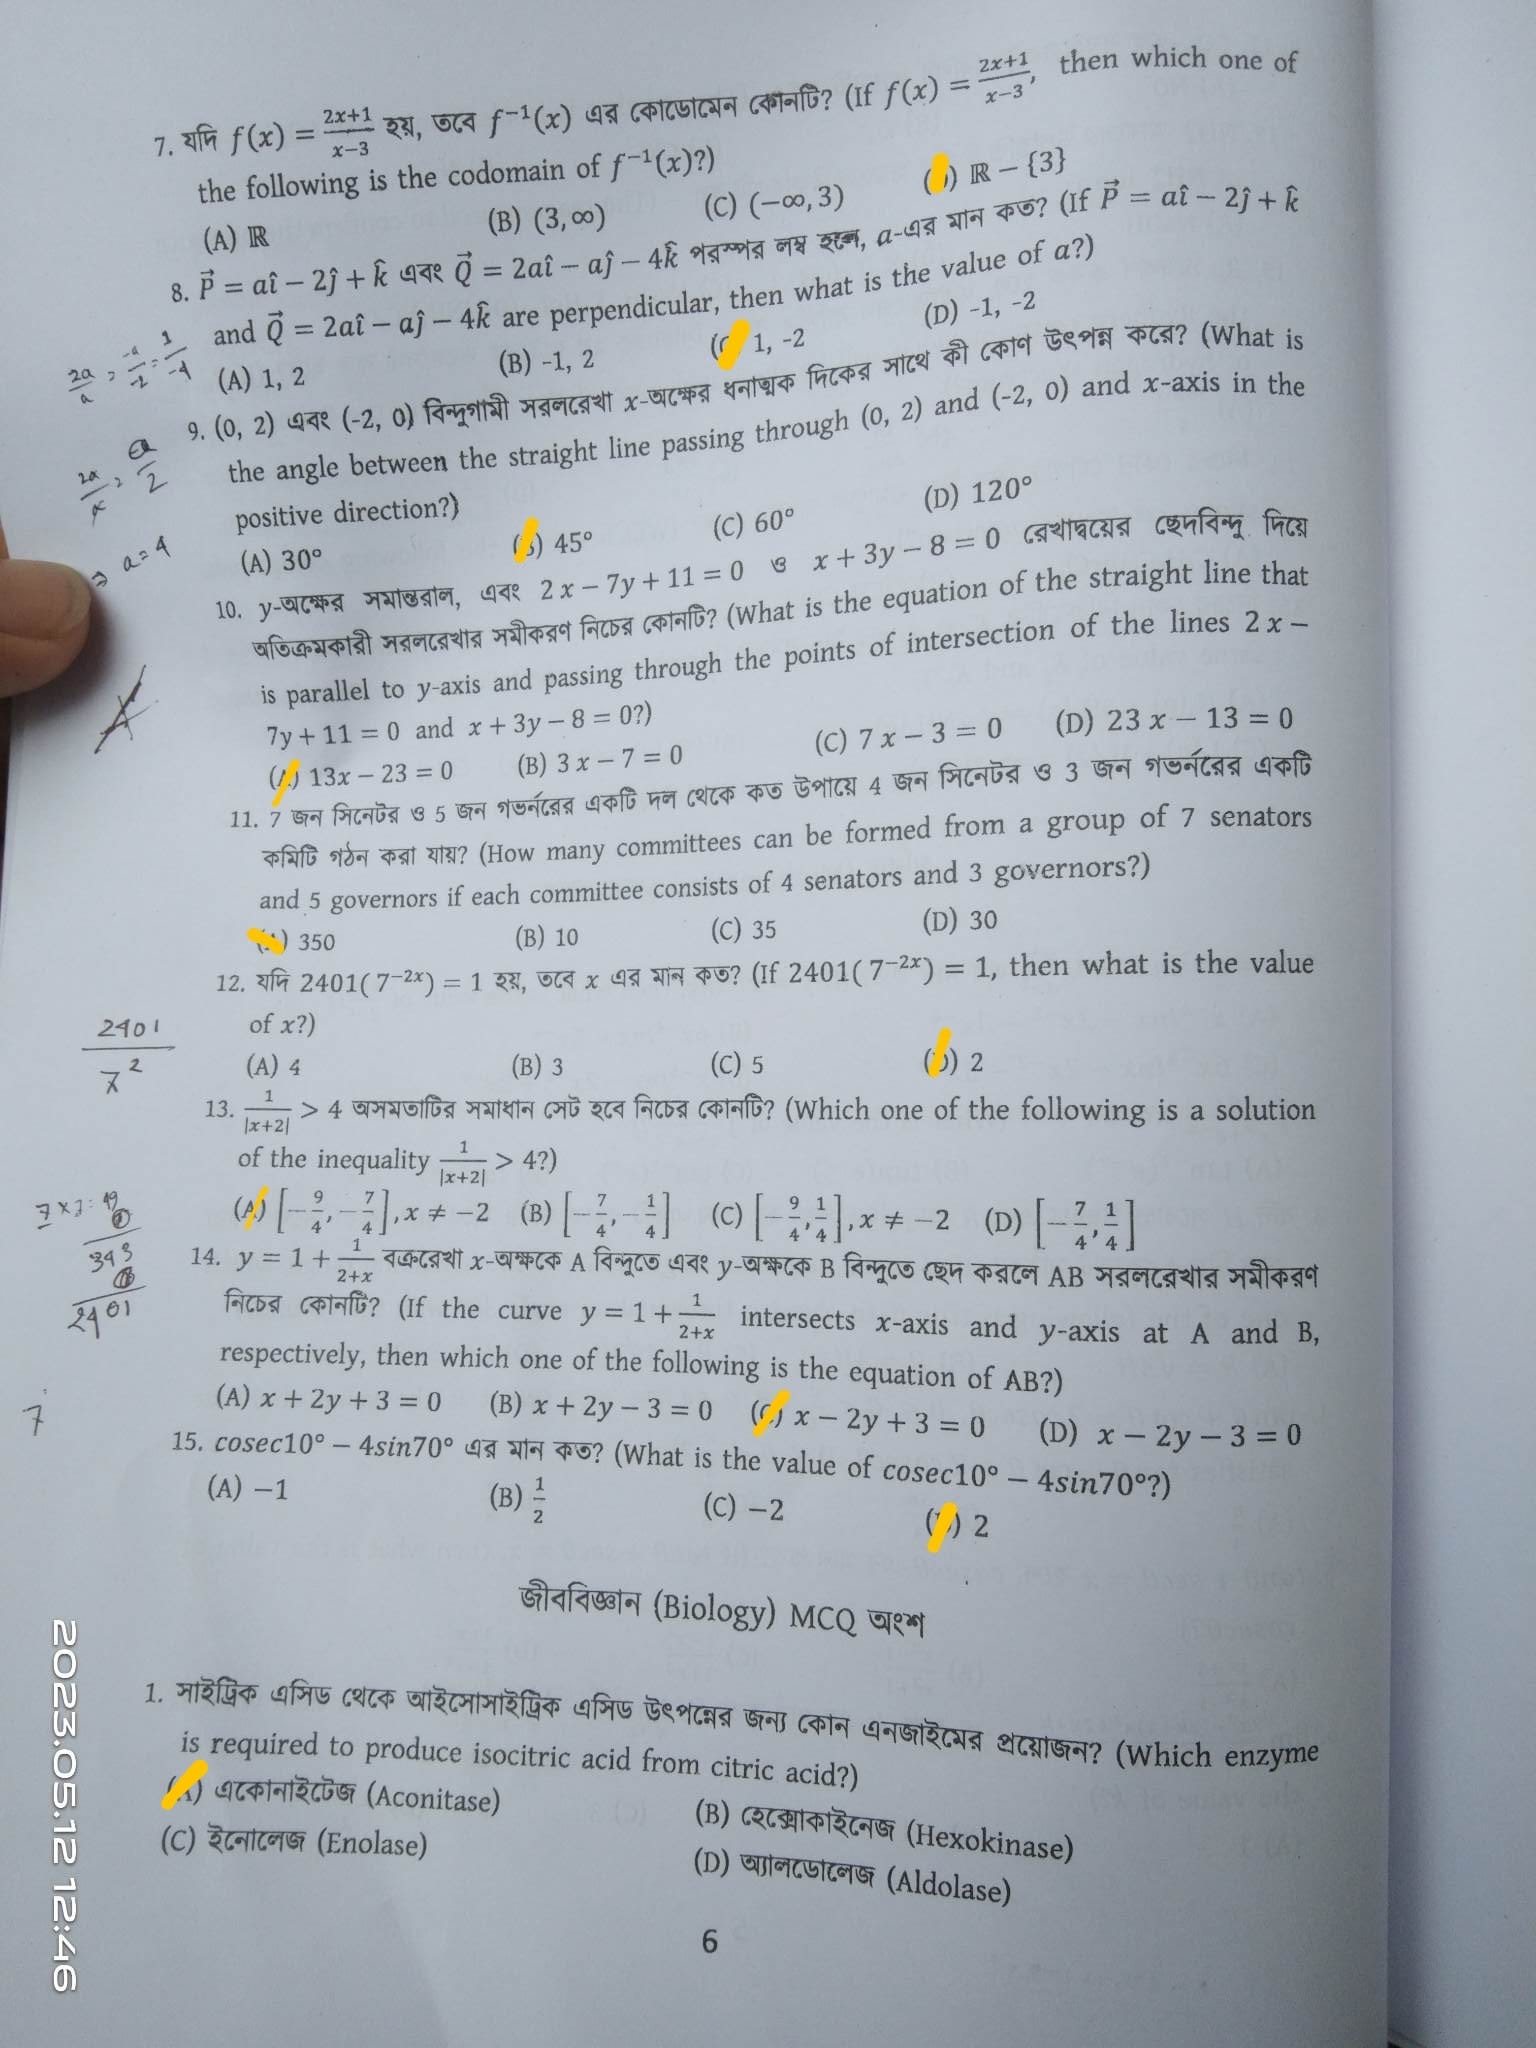 7. যদি f(x) = \frac{2x+1}{x-3} হয়, তবে f⁻¹(x) এর কোডোমেন কোনটি? (If f(x) = \frac{2x+1}{x-3}, then which one of
the following is the codomain of f⁻¹(x)?)
(A) ℝ (B) (3, ∞) (C) (−∞, 3) ) ℝ − {3}
8. P⃗ = aî − 2ĵ + k̂ এবং Q⃗ = 2aî − aĵ − 4k̂ পরস্পর লম্ব হলে, a-এর মান কত? (If P⃗ = aî − 2ĵ + k̂
and Q⃗ = 2aî − aĵ − 4k̂ are perpendicular, then what is the value of a?)
(A) 1, 2 (B) -1, 2 (C) 1, -2 (D) -1, -2
9. (0, 2) এবং (-2, 0) বিন্দুগামী সরলরেখা x-অক্ষের ধনাত্মক দিকের সাথে কী কোণ উৎপন্ন করে? (What is
the angle between the straight line passing through (0, 2) and (-2, 0) and x-axis in the
positive direction?)
(A) 30° (B) 45° (C) 60° (D) 120°
10. y-অক্ষের সমান্তরাল, এবং 2x − 7y + 11 = 0 ও x + 3y − 8 = 0 রেখাদ্বয়ের ছেদবিন্দু দিয়ে
অতিক্রমকারী সরলরেখার সমীকরণ নিচের কোনটি? (What is the equation of the straight line that
is parallel to y-axis and passing through the points of intersection of the lines 2x −
7y + 11 = 0 and x + 3y − 8 = 0?)
(A) 13x − 23 = 0 (B) 3x − 7 = 0 (C) 7x − 3 = 0 (D) 23x − 13 = 0
11. 7 জন সিনেটর ও 5 জন গভর্নরের একটি দল থেকে কত উপায়ে 4 জন সিনেটর ও 3 জন গভর্নরের একটি
কমিটি গঠন করা যায়? (How many committees can be formed from a group of 7 senators
and 5 governors if each committee consists of 4 senators and 3 governors?)
(A) 350 (B) 10 (C) 35 (D) 30
12. যদি 2401(7^{−2x}) = 1 হয়, তবে x এর মান কত? (If 2401(7^{−2x}) = 1, then what is the value
of x?)
(A) 4 (B) 3 (C) 5 (D) 2
13. \frac{1}{|x+2|} > 4 অসমতাটির সমাধান সেট হবে নিচের কোনটি? (Which one of the following is a solution
of the inequality \frac{1}{|x+2|} > 4?)
(A) [−\frac{9}{4}, −\frac{7}{4}], x ≠ −2 (B) [−\frac{7}{4}, −\frac{1}{4}] (C) [−\frac{9}{4}, \frac{1}{4}], x ≠ −2 (D) [−\frac{7}{4}, \frac{1}{4}]
14. y = 1 + \frac{1}{2+x} বক্ররেখা x-অক্ষকে A বিন্দুতে এবং y-অক্ষকে B বিন্দুতে ছেদ করলে AB সরলরেখার সমীকরণ
নিচের কোনটি? (If the curve y = 1 + \frac{1}{2+x} intersects x-axis and y-axis at A and B,
respectively, then which one of the following is the equation of AB?)
(A) x + 2y + 3 = 0 (B) x + 2y − 3 = 0 (C) x − 2y + 3 = 0 (D) x − 2y − 3 = 0
15. cosec10° − 4sin70° এর মান কত? (What is the value of cosec10° − 4sin70°?)
(A) −1 (B) \frac{1}{2} (C) −2 (D) 2
জীববিজ্ঞান (Biology) MCQ অংশ
1. সাইট্রিক এসিড থেকে আইসোসাইট্রিক এসিড উৎপন্নের জন্য কোন এনজাইমের প্রয়োজন? (Which enzyme
is required to produce isocitric acid from citric acid?)
(A) একোনাইটেজ (Aconitase) (B) হেক্সোকাইনেজ (Hexokinase)
(C) ইনোলেজ (Enolase) (D) অ্যালডোলেজ (Aldolase)
6
\frac{2a}{a} = \frac{-a}{-2} = \frac{1}{-4}
⇒ a = 4
\frac{2401}{7^2}
7 x 7 = 49
343
2401
7
2023.05.12 12:46